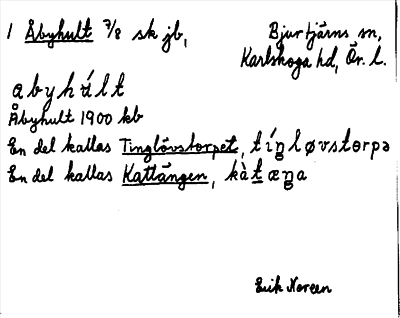 1 Åbyhult 7/8 sk jb,
Bjurtjärns sn,
Karlskoga hd, Ör. l.
åbyhúlt
Åbyhult 1900 kb
En del kallas Tinglövstorpet, tíŋløvstorpə
En del kallas Kattängen, kàtæŋa
Erik Noreen